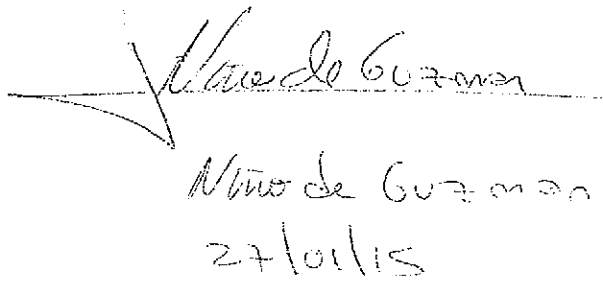 Niño de Guzman
Niño de Guzman
27/01/15